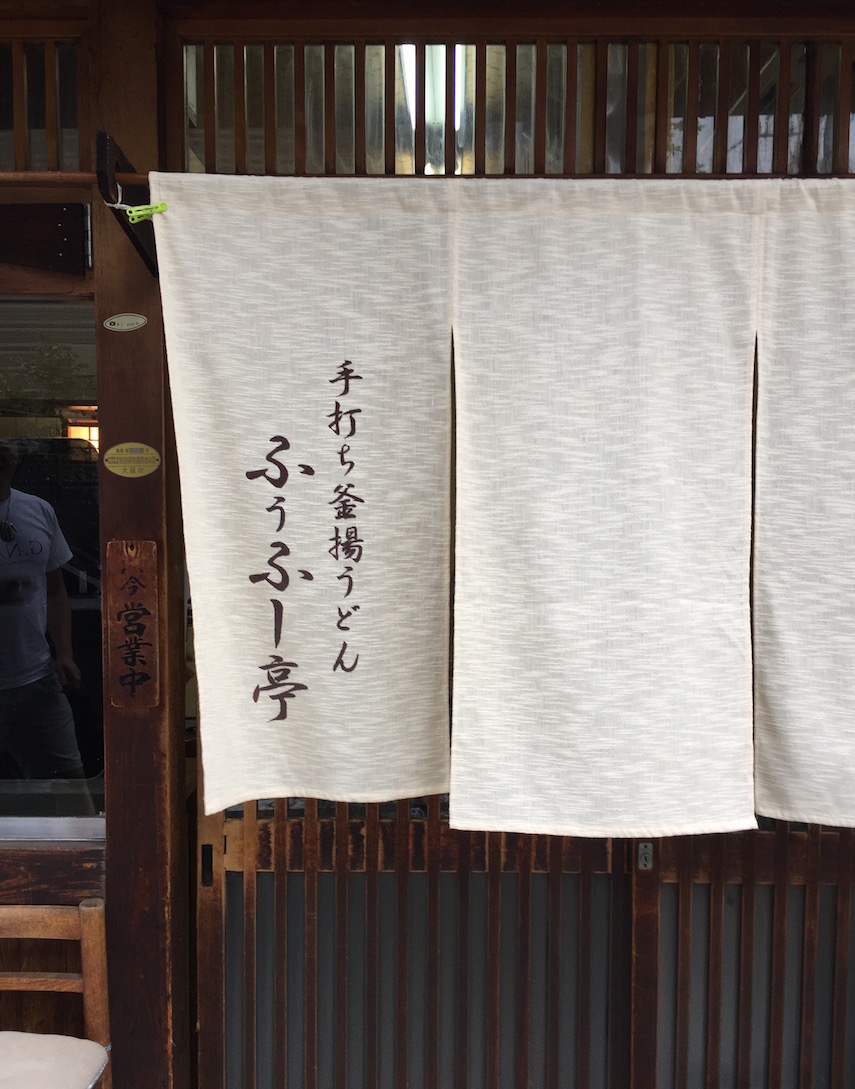 手打ち釜揚うどん
ふぅふー亭
今
営業中
大阪府